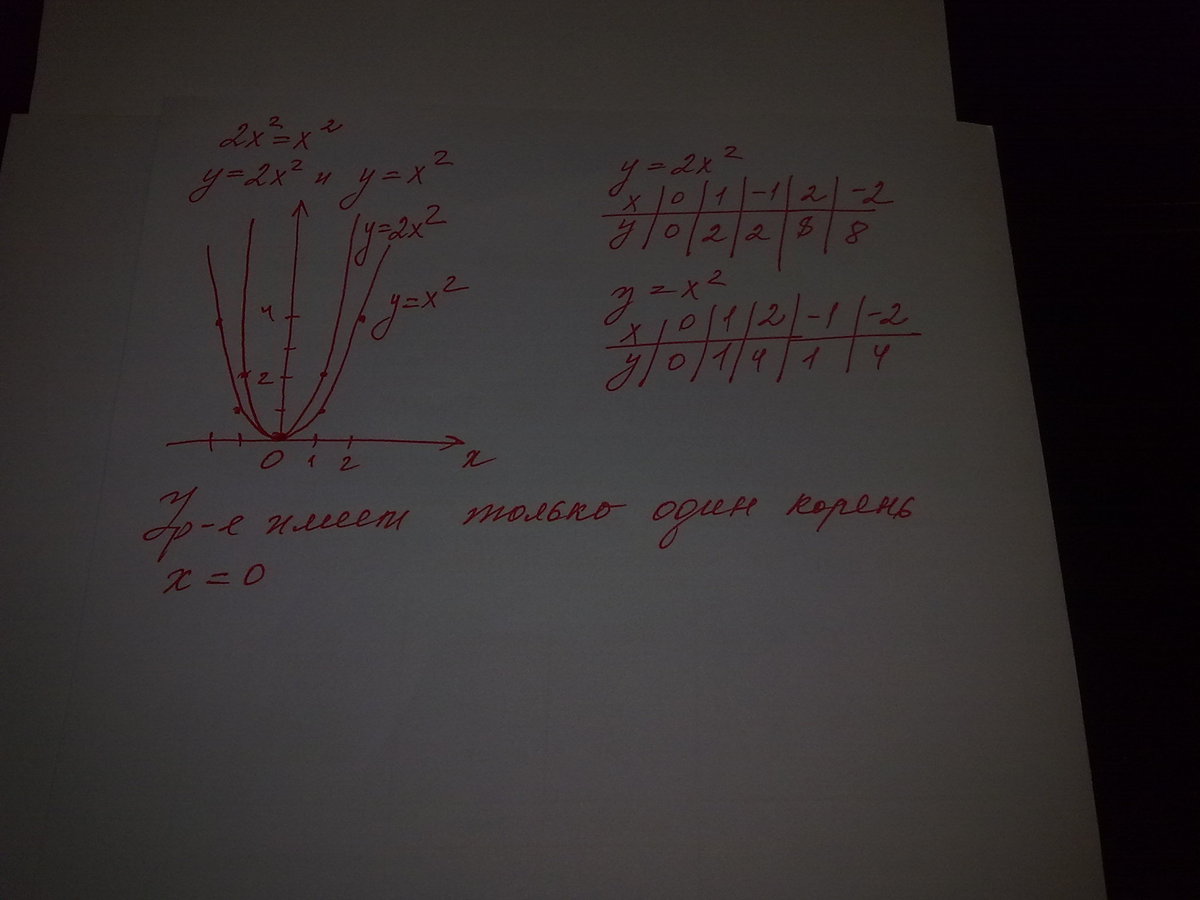 2x² = x²
y = 2x² и y = x²
y=2x²
y=x²
4
2
0 1 2 x
y = 2x²
x | 0 | 1 | -1 | 2 | -2
y | 0 | 2 | 2 | 8 | 8
y = x²
x | 0 | 1 | 2 | -1 | -2
y | 0 | 1 | 4 | 1 | 4
Ур-е имеет только один корень
x = 0